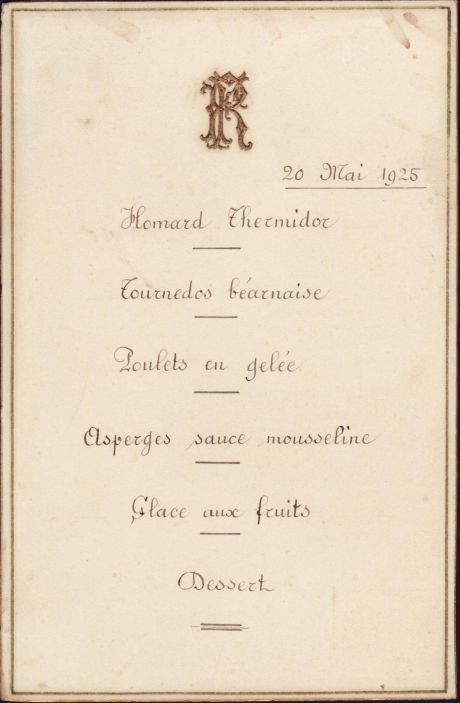 20 Mai 1925
Homard Thermidor
Tournedos béarnaise
Poulets en gelée
Asperges sauce mousseline
Glace aux fruits
Dessert